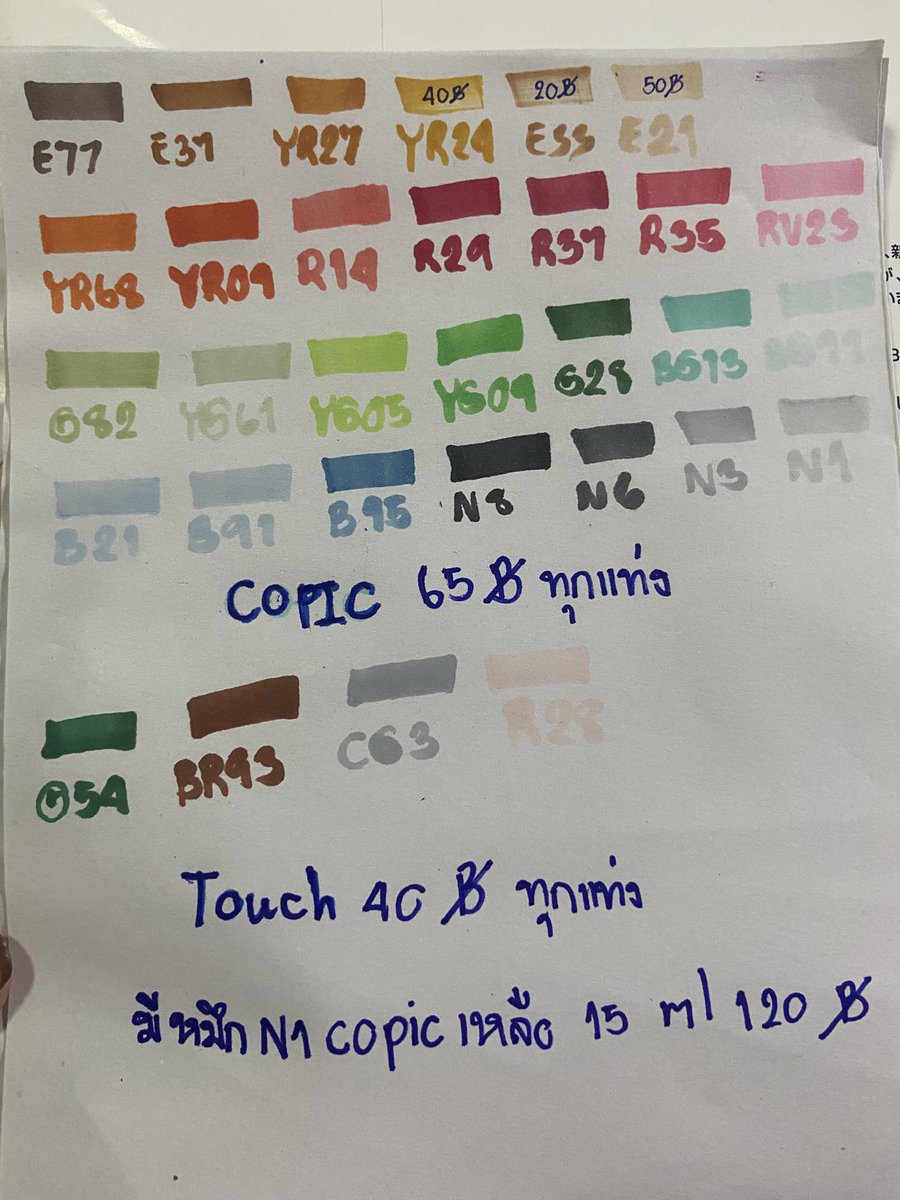 40฿ 20฿ 50฿
E77 E37 YR27 YR24 E33 E21
YR68 YR09 R14 R29 R37 R35 RV23
G82 YG61 YG05 YG09 G28 BG13 BG11
B21 B91 B95 N8 N6 N3 N1
COPIC 65฿ ทุกแท่ง
G54 BR93 CG3 R28
Touch 40฿ ทุกแท่ง
มีหมึก N1 copic เหลือ 15 ml 120฿